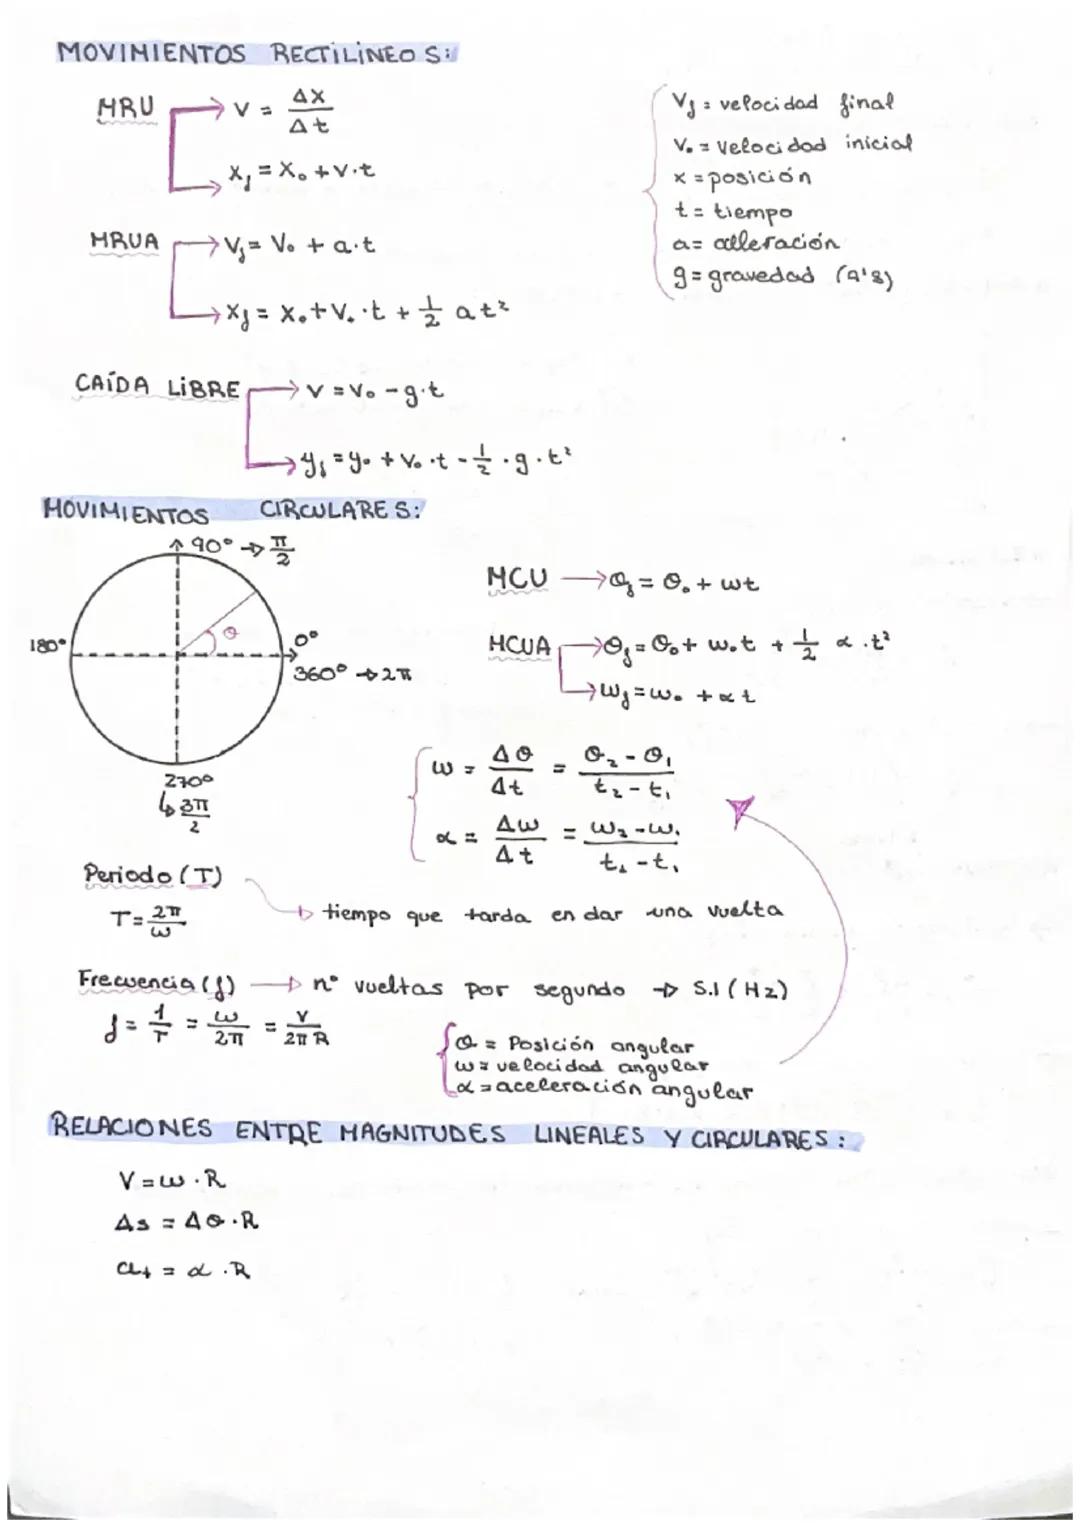 MOVIMIENTOS RECTILÍNEOS:
MRU → v = Δx / Δt
→ x_f = x₀ + v·t
v_f = velocidad final
v₀ = velocidad inicial
x = posición
t = tiempo
a = aceleración
g = gravedad (9'8)
MRUA → v_f = v₀ + a·t
→ x_f = x₀ + v₀·t + 1/2 at²
CAÍDA LIBRE → v = v₀ - g·t
→ y_f = y₀ + v₀·t - 1/2 · g · t²
MOVIMIENTOS CIRCULARES:
90° → π/2
180°
θ
0°
360° → 2π
270°
↳ 3π/2
MCU → θ_f = θ₀ + ωt
MCUA → θ_f = θ₀ + ω₀t + 1/2 α · t²
→ ω_f = ω₀ + αt
ω = Δθ / Δt = θ₂ - θ₁ / t₂ - t₁
α = Δω / Δt = ω₂ - ω₁ / t₂ - t₁
Periodo (T)
T = 2π / ω
→ tiempo que tarda en dar una vuelta
Frecuencia (f) → nº vueltas por segundo → S.I (Hz)
f = 1/T = ω/2π = v/2πR
θ = Posición angular
ω = velocidad angular
α = aceleración angular
RELACIONES ENTRE MAGNITUDES LINEALES Y CIRCULARES:
V = ω · R
Δs = Δθ · R
a_t = α · R